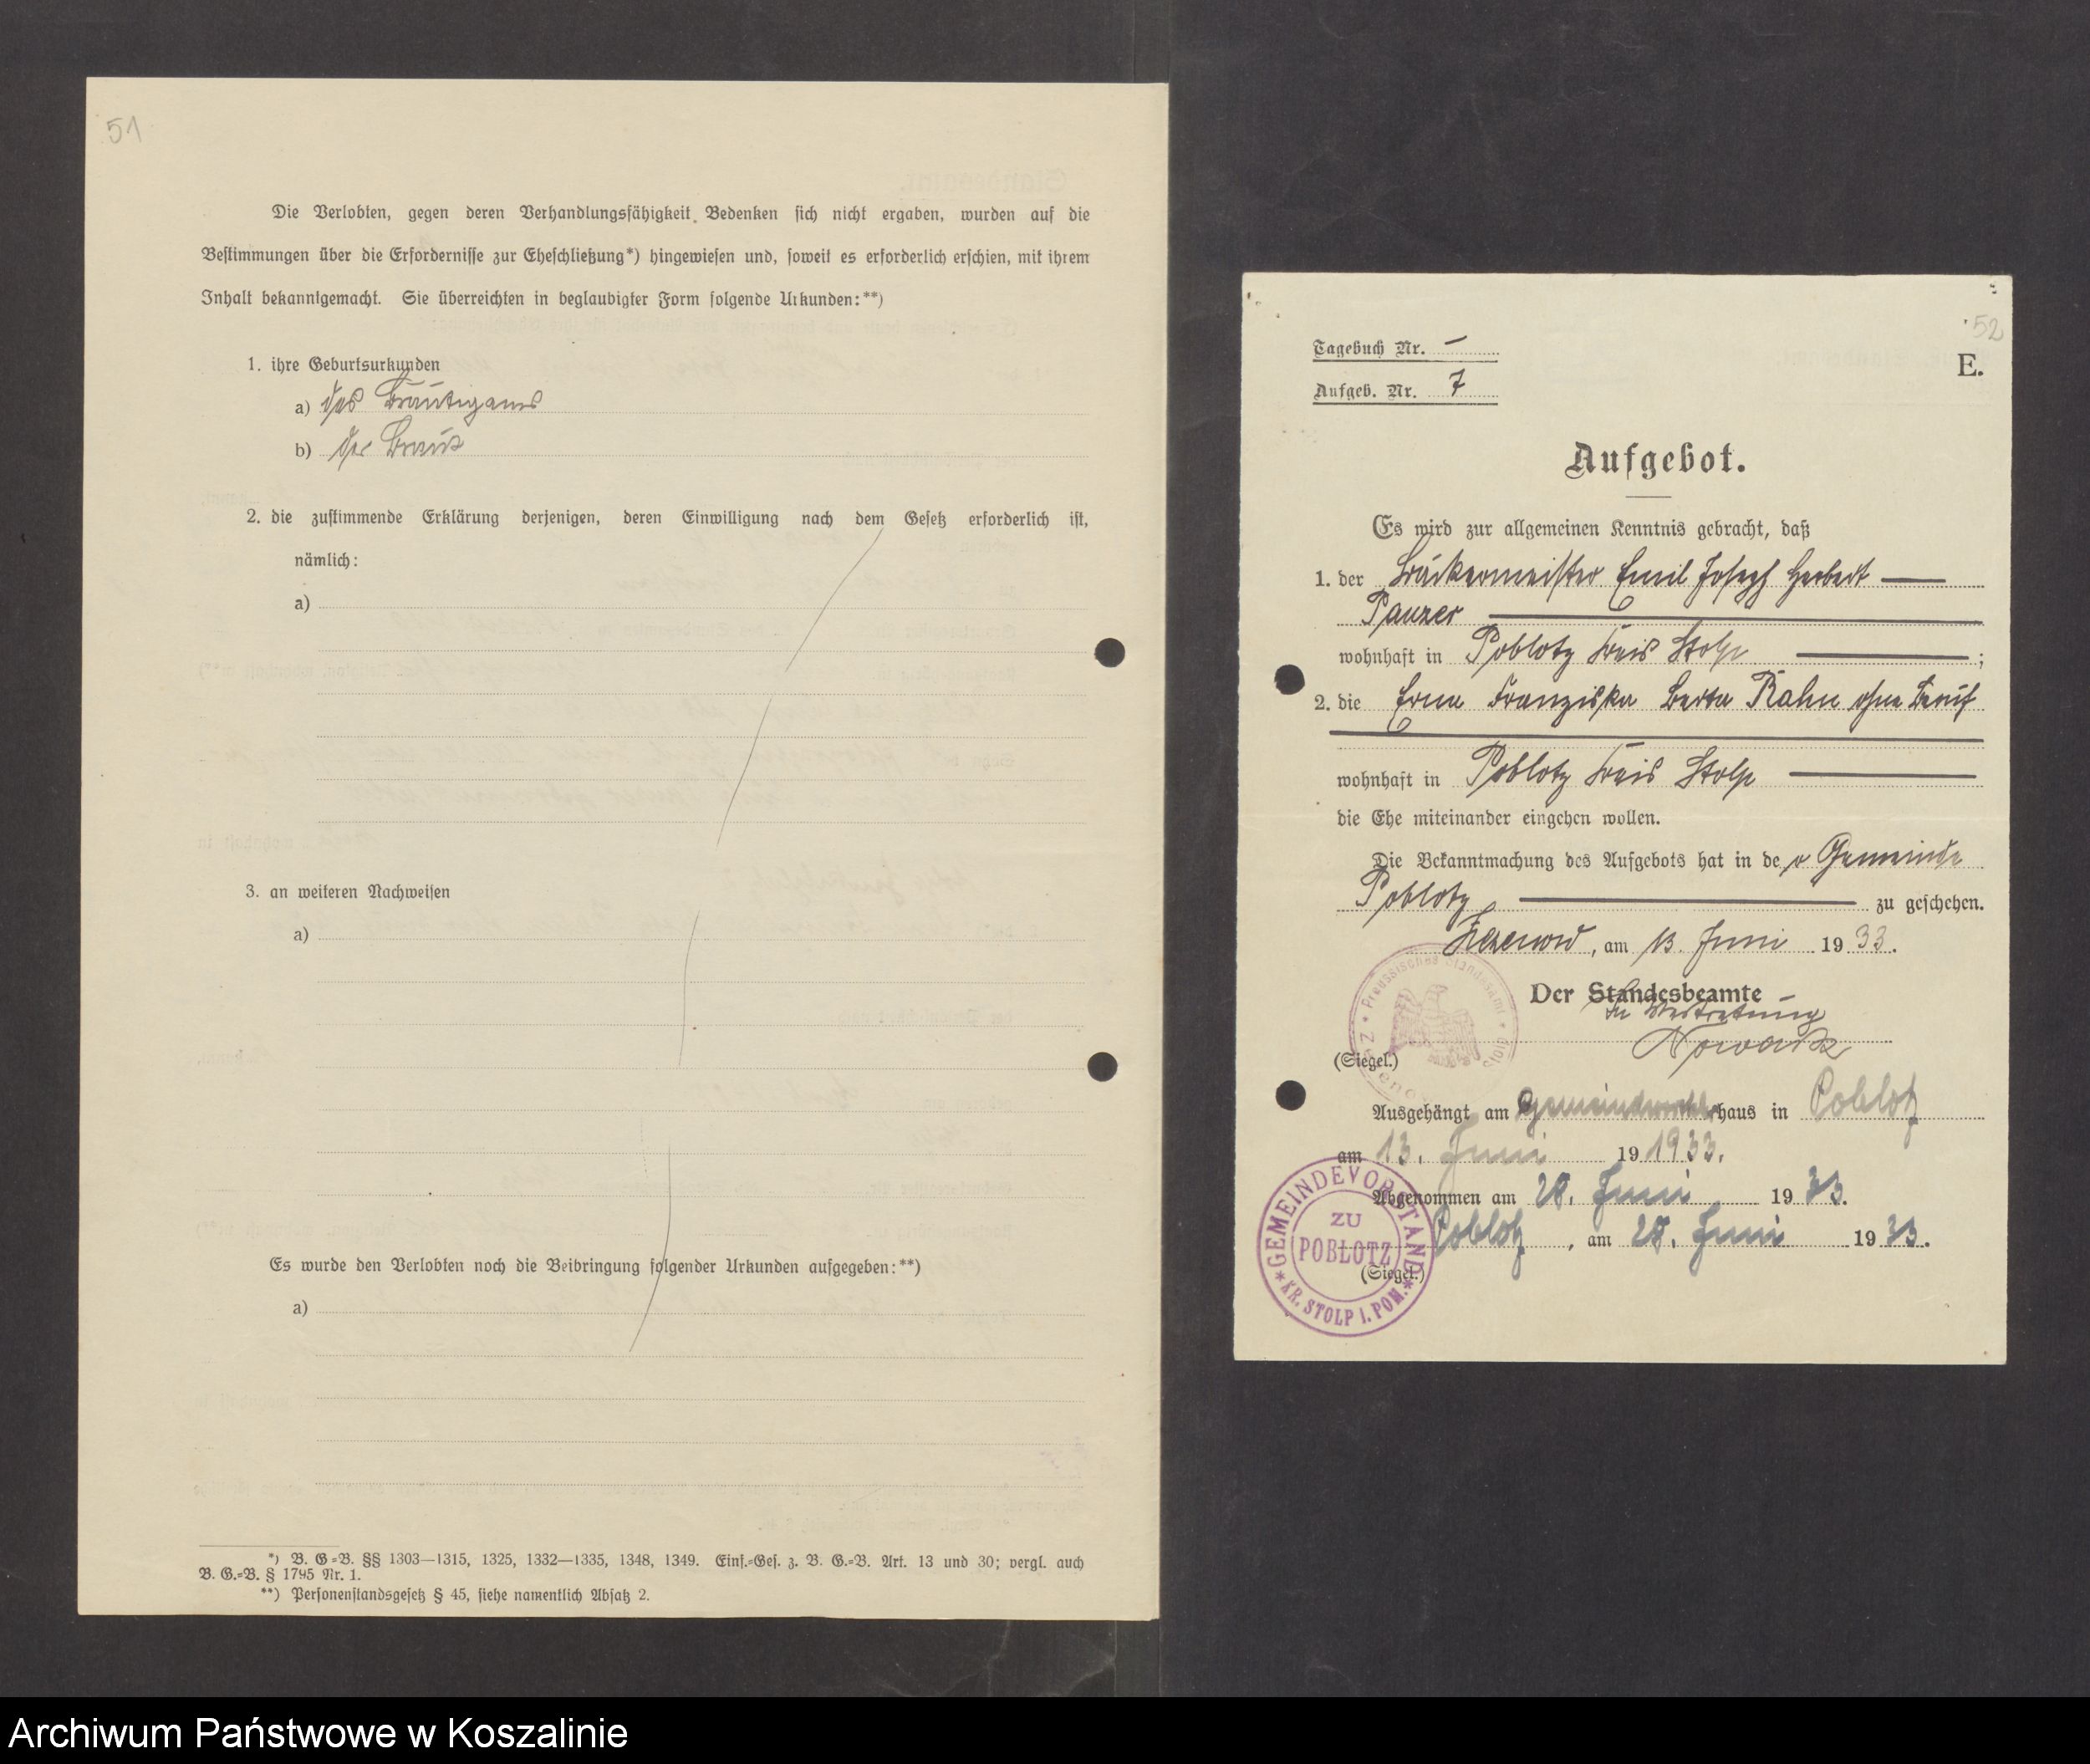 51
Die Verlobten, gegen deren Verhandlungsfähigkeit Bedenken sich nicht ergaben, wurden auf die
Bestimmungen über die Erfordernisse zur Eheschließung*) hingewiesen und, soweit es erforderlich erschien, mit ihrem
Inhalt bekanntgemacht. Sie überreichten in beglaubigter Form folgende Urkunden:**)
1. ihre Geburtsurkunden
a) des Bräutigams
b) der Braut
2. die zustimmende Erklärung derjenigen, deren Einwilligung nach dem Gesetz erforderlich ist,
nämlich:
a)
3. an weiteren Nachweisen
a)
Es wurde den Verlobten noch die Beibringung folgender Urkunden aufgegeben:**)
a)
*) B. G.=B. §§ 1303—1315, 1325, 1332—1335, 1348, 1349. Einf.=Ges. z. B. G.=B. Art. 13 und 30; vergl. auch
B. G.=B. § 1795 Nr. 1.
**) Personenstandsgesetz § 45, siehe namentlich Absatz 2.
52
Tagebuch Nr. —
E.
Aufgeb. Nr. 7
Aufgebot.
Es wird zur allgemeinen Kenntnis gebracht, daß
1. der Bäckermeister Emil Joseph Herbert —
Panzer —
wohnhaft in Poblotz Kreis Stolp — ;
2. die Erna Franziska Berta Rahn ohne Beruf
wohnhaft in Poblotz Kreis Stolp —
die Ehe miteinander eingehen wollen.
Die Bekanntmachung des Aufgebots hat in der Gemeinde
Poblotz — zu geschehen.
Zezenow, am 13. Juni 1933.
Der Standesbeamte
In Vertretung
Nowack
(Siegel.)
Preussisches Standesamt Zezenow Stolp
Ausgehängt am Gemeinde haus in Poblotz
am 13. Juni 19 1933.
Abgenommen am 28. Juni 1933.
Poblotz, am 28. Juni 1933.
(Siegel.)
GEMEINDEVORSTAND
ZU
POBLOTZ
* KR. STOLP I. POM. *
Archiwum Państwowe w Koszalinie